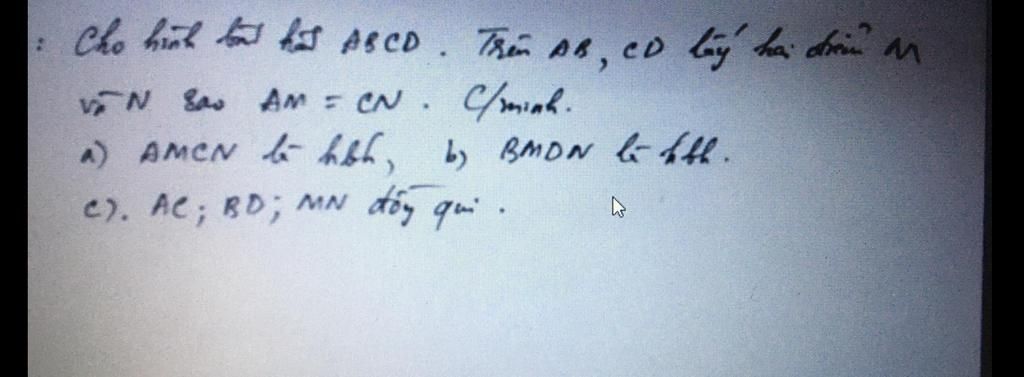 : Cho hình bình hành ABCD. Trên AB, CD lấy hai điểm M
và N sao AM = CN. C/minh.
a) AMCN là hbh, b) BMDN là hbh.
c). AC; BD; MN đồng qui.